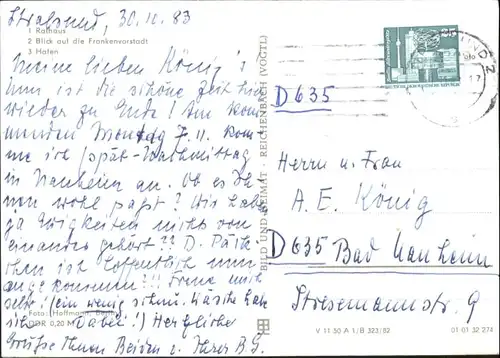 Stralsund, 30.10.83
1 Rathaus
2 Blick auf die Frankenvorstadt
3 Hafen
Meine lieben König's
Nun ist die schöne Zeit hier
wieder zu Ende! Am kom
menden Montag 7.11. kom
me ich (spät-Nachmittag
in Nauheim an. Ob es Ih
nen wohl paßt? Wir haben
ja Ewigkeiten nichts von
einander gehört?? D. Päck
chen ist hoffentlich nun
angekommen!!! Freue mich
sehr! (ein wenig
Dabei!) Herzliche
Grüße Ihnen Beiden v. Ihrer B.G.
Foto: (Hoffmann, Berlin)
DDR 0,20 M
BILD UND HEIMAT · REICHENBACH (VOGTL)
D 635
Herrn u. Frau
A. E. König
D 635 Bad Nauheim
Stresemannstr. 9
V 11 50 A 1/B 323/82
01 01 32 274